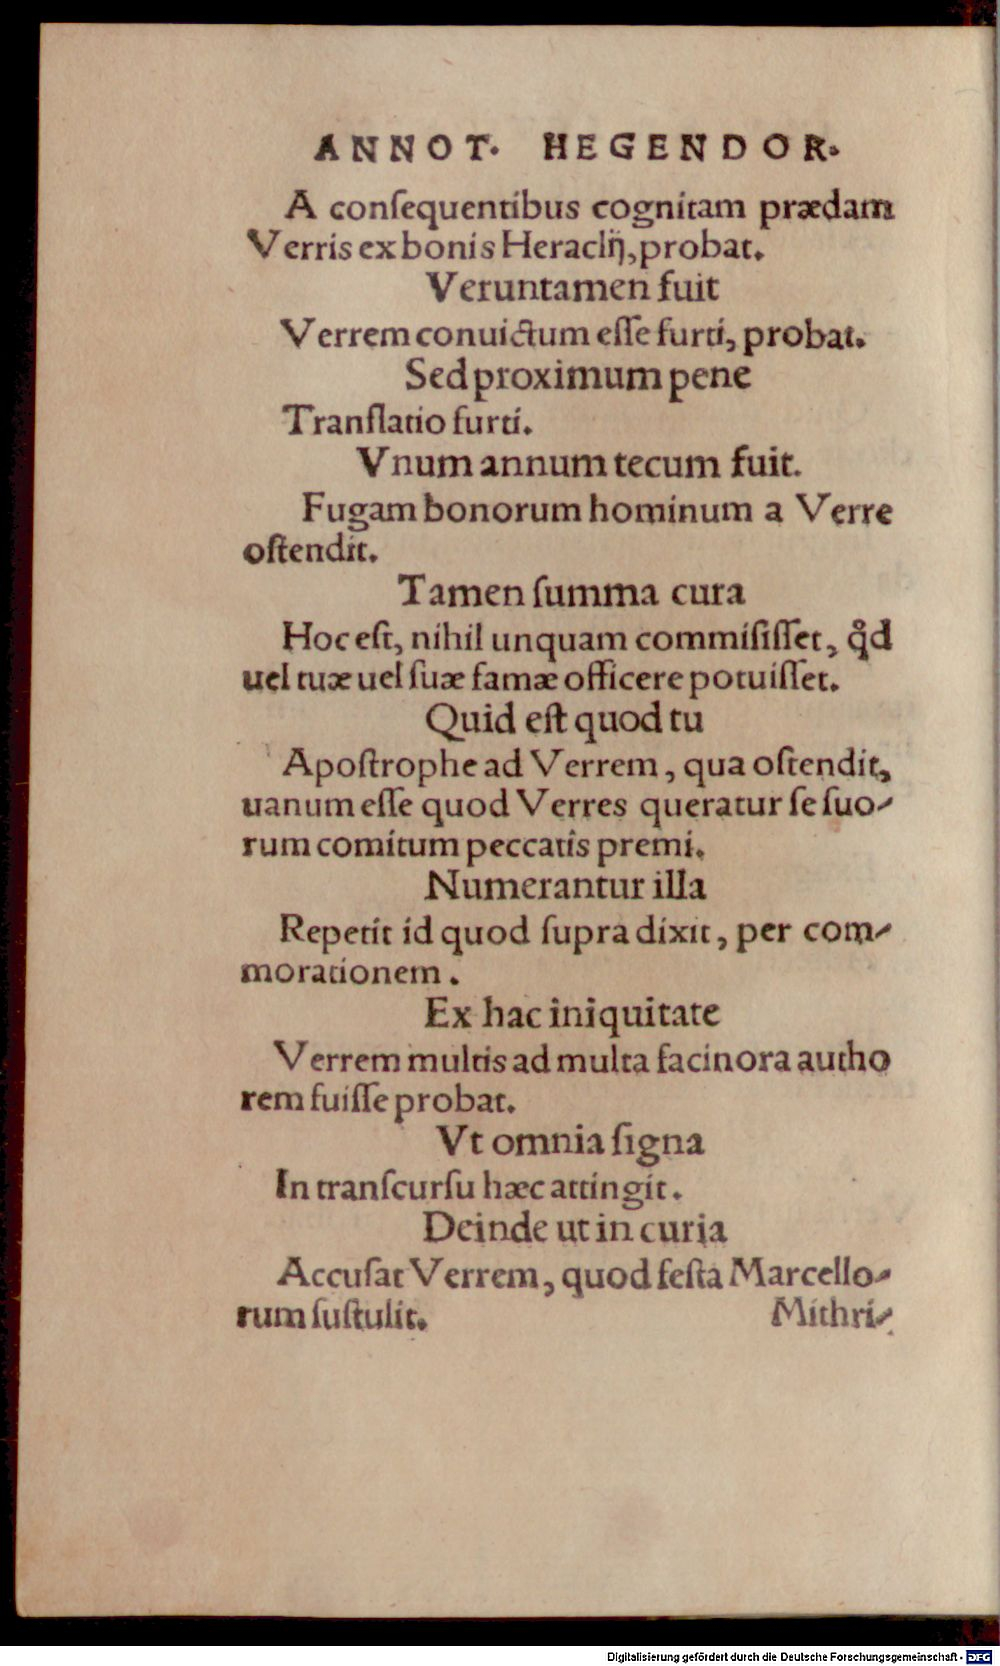 ANNOT. HEGENDOR.
A conſequentibus cognitam prædam
Verris ex bonis Heraclij, probat.
Veruntamen fuit
Verrem conuictum eſſe furti, probat.
Sed proximum pene
Tranſlatio furti.
Vnum annum tecum fuit.
Fugam bonorum hominum a Verre
oſtendit.
Tamen ſumma cura
Hoc eſt, nihil unquam commiſiſſet, qd̊
uel tuæ uel ſuæ famæ officere potuiſſet.
Quid eſt quod tu
Apoſtrophe ad Verrem, qua oſtendit,
uanum eſſe quod Verres queratur ſe ſuo-
rum comitum peccatis premi.
Numerantur illa
Repetit id quod ſupra dixit, per com-
morationem.
Ex hac iniquitate
Verrem multis ad multa facinora autho
rem fuiſſe probat.
Vt omnia ſigna
In tranſcurſu hæc attingit.
Deinde ut in curia
Accuſat Verrem, quod feſta Marcello-
rum ſuſtulit. Mithri-
Digitalisierung gefördert durch die Deutsche Forschungsgemeinschaft - DFG